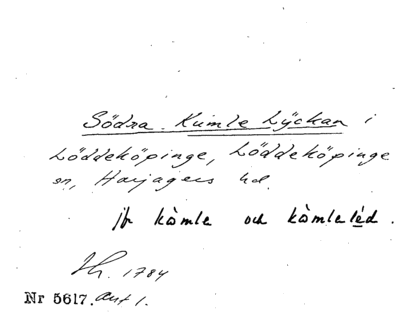 Södra Kumle Lÿckan i
Löddeköpinge, Löddeköpinge
sn, Harjagers hd.
jfr kòmle och kòmleléd.
1784
Nr 5617. ant 1.